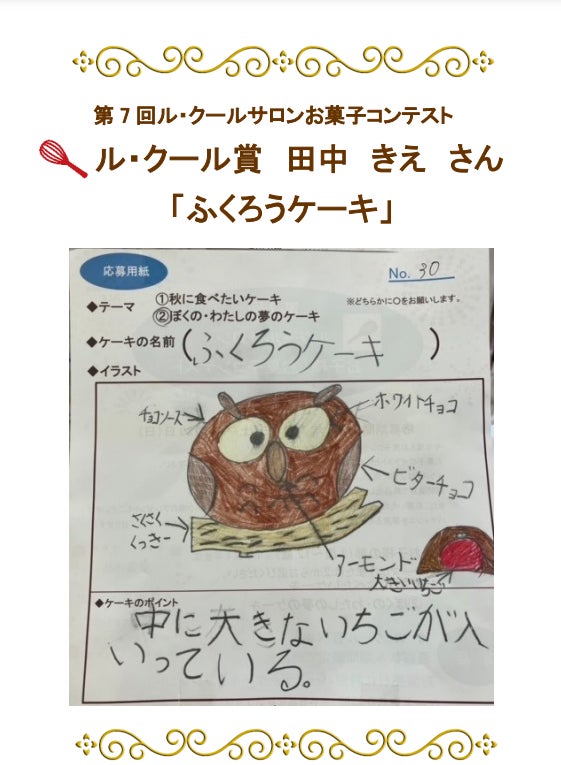 第7回ル・クールサロンお菓子コンテスト
ル・クール賞 田中 きえ さん
「ふくろうケーキ」
応募用紙
No. 30
◆テーマ ①秋に食べたいケーキ ※どちらかに○をお願いします。
②ぼくの・わたしの夢のケーキ
◆ケーキの名前 (ふくろうケーキ)
◆イラスト
チョコソース
ホワイトチョコ
ビターチョコ
さくさく
くっきー
アーモンド
大きいいちご
◆ケーキのポイント
中に大きないちごが入
いっている。